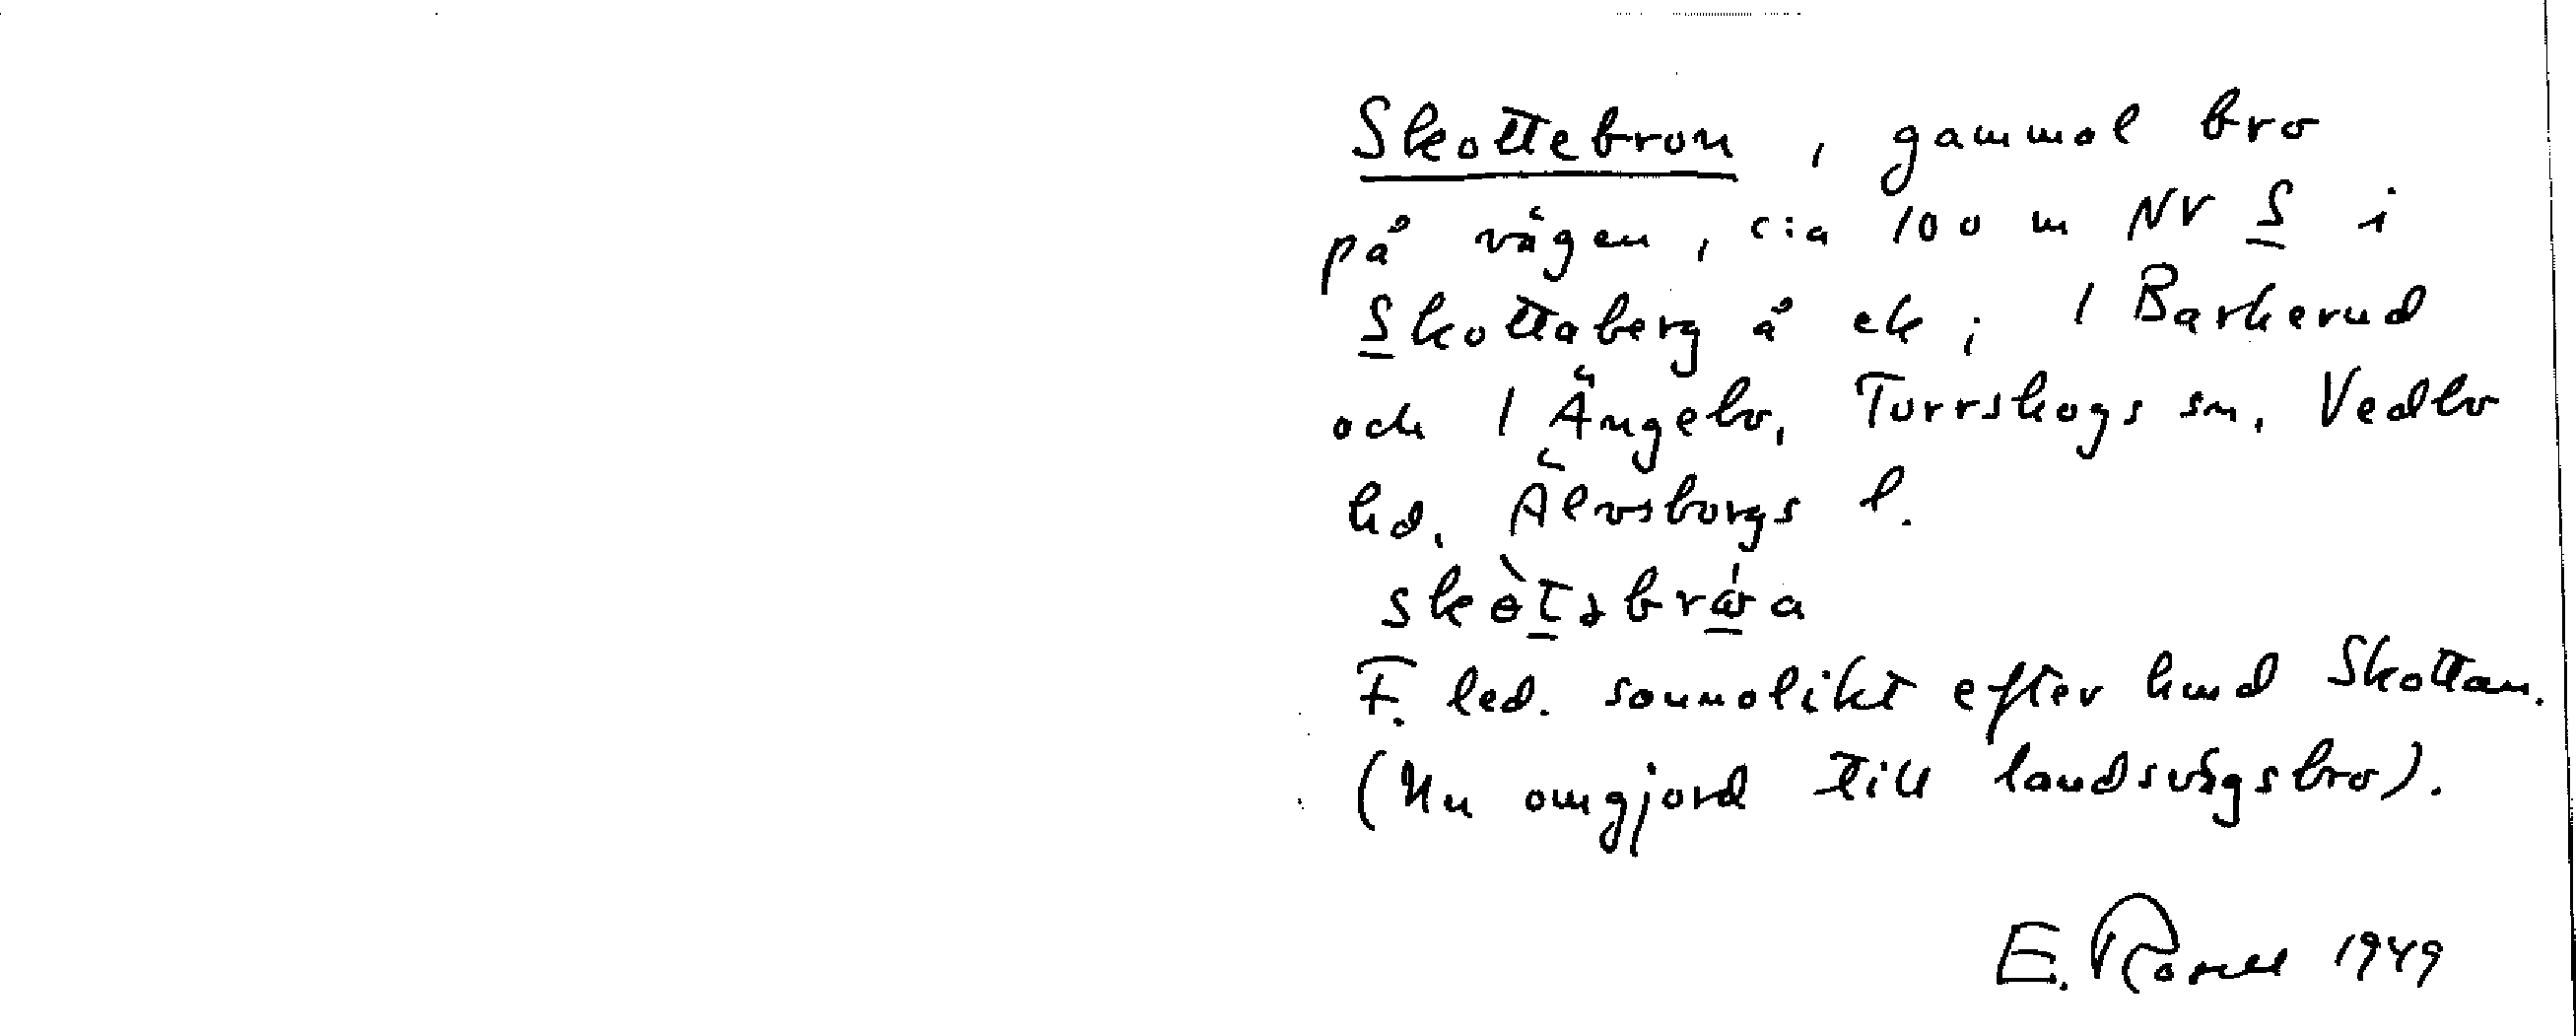 Skottebron, gammal bro
på vägen, c:a 100 m NV S i
Skottaberg å ek; 1 Barkerud
och 1 Ängebo, Torrskogs sn. Vedbo
hd. Älvsborgs l.
F. led. sannolikt efter hmd Skottan.
(Nu omgjord till landsvägsbro).
E. Rosell 1949